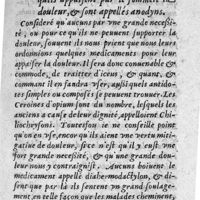 douleur, & sont appellés anodyns.
Consideré qu'aucuns par vne grande necessi-
té, ou pour ce qu'ils ne peuuent supporter la
douleur, souuent ils nous prient que nous leurs
ordonnions quelques medicaments pour leur
appaiser la douleur. Il sera donc conuenable &
commode, de traitter d'iceux, & quant, &
comment il en faudra vser, aussi quels antido-
tes simples ou composés se peuuent trouuer. Les
Ceroines d'opium sont du nombre, lesquels les
anciens a cause de leur dignité, appelloient Chi-
lioscheysoni. Toutesfois ie ne conseille point
qu'on en vse, encor qu'ils aient vne vertu miti-
gatiue de douleur, sice n'est qu'il y eust vne
fort grande necessité, & qu'vne grande dou-
leur nous y contraignist. Aucuns boiuent le
medicament appellé diahermodactylon, &
disent que par là ils sentent vn grand soulage-
ment, en telle sorte que les malades cheminent,